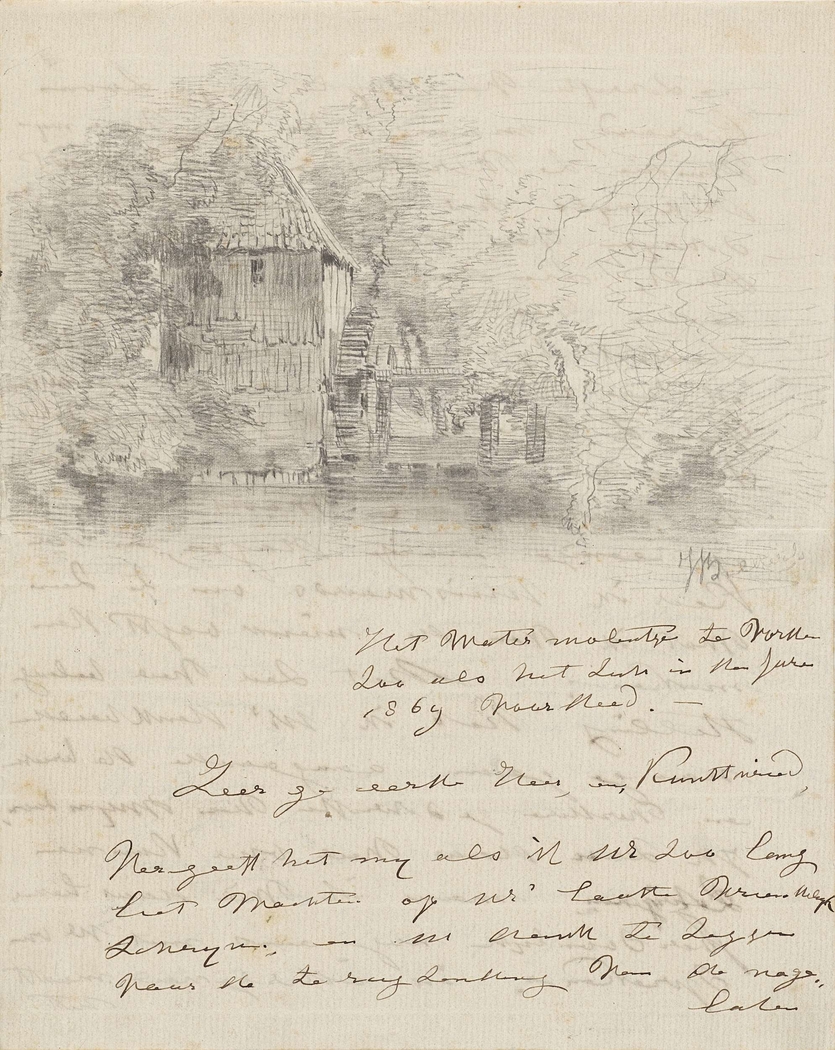 Het Water molentje te Vorden
Zoo als het Zich in den Jare
1869 voordeed. —
Zeer ge eerde Heer, en, Kunstvriend,
Vergeeft het my als ik UE Zoo lang
liet Wachten op UE' laatste Vriendelyk
Schryven, en UE dank te Zeggen
voor de terug Zending van de nage,,
laten